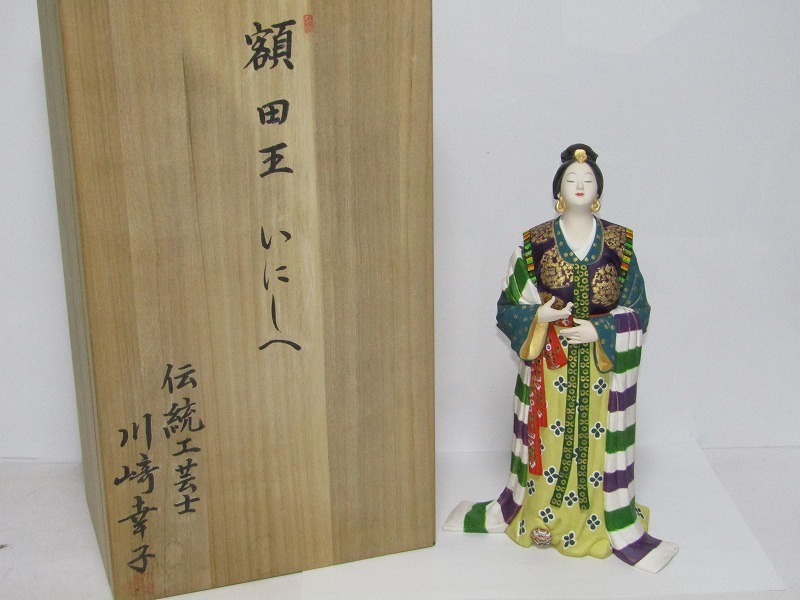 額田王 いにしへ
伝統工芸士
川﨑幸子